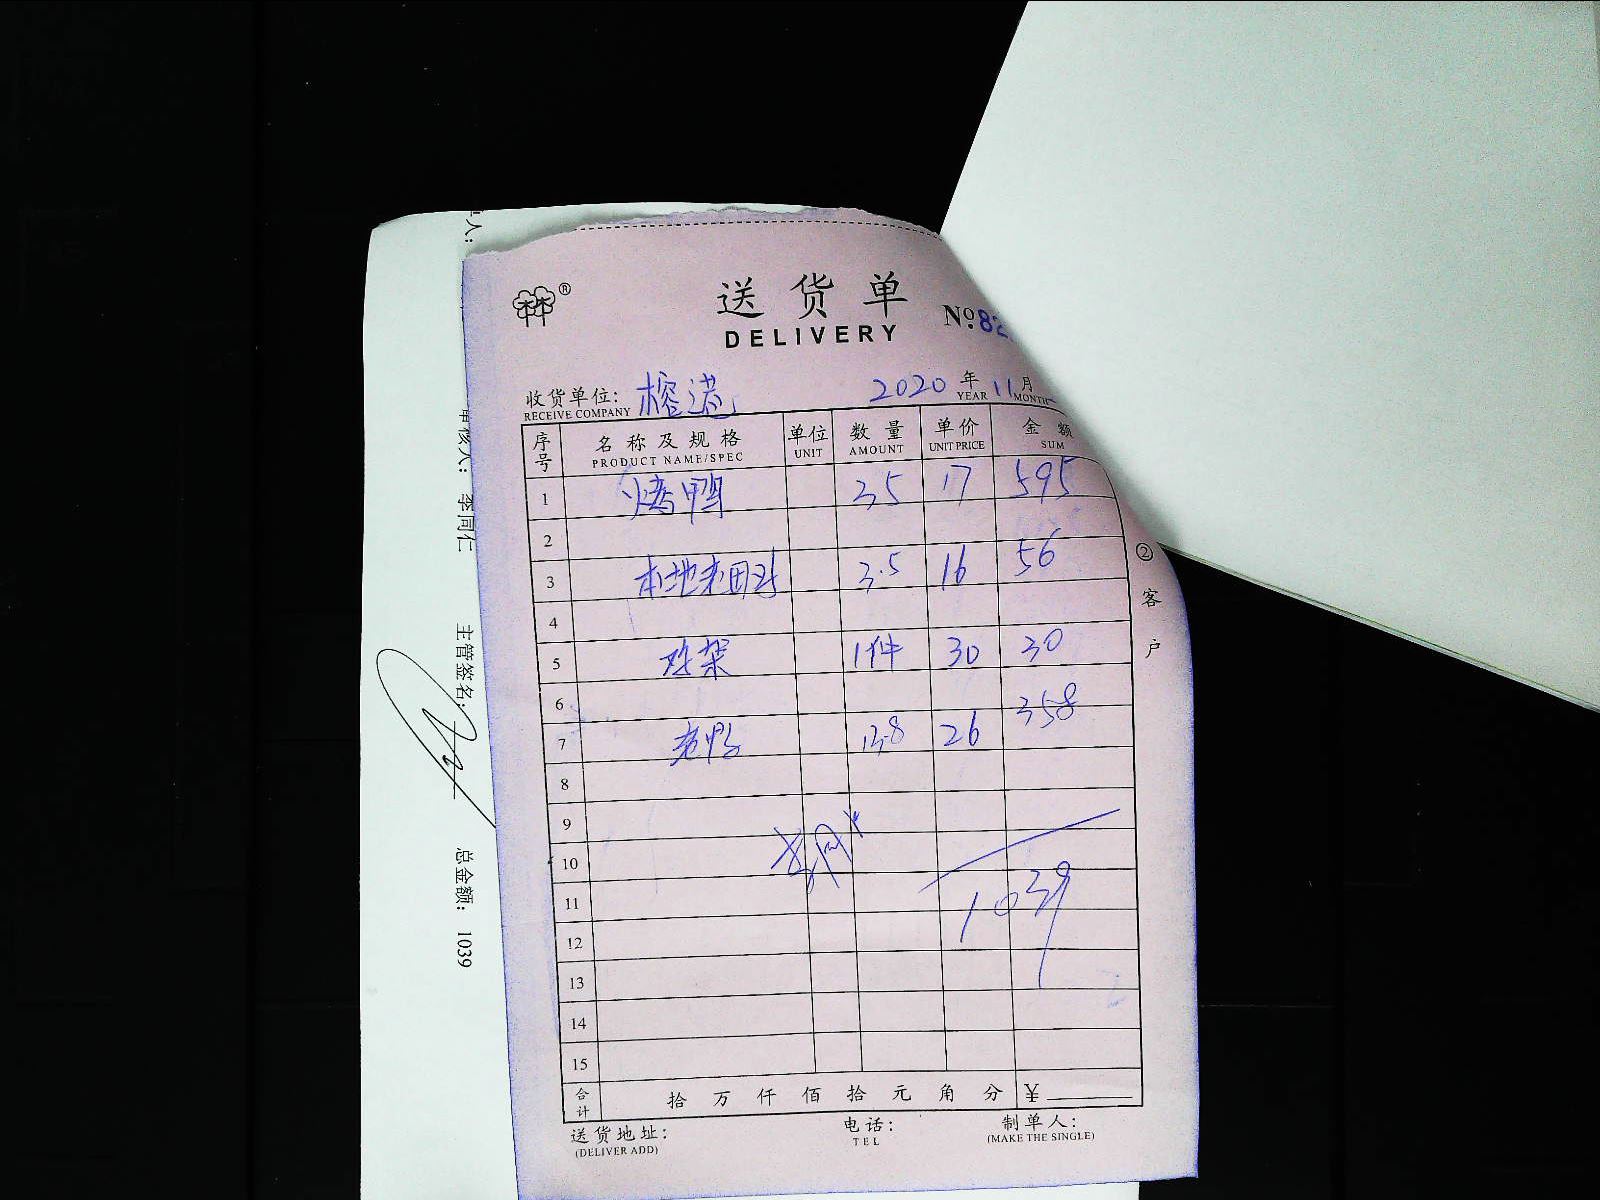 ®
送货单
DELIVERY
№82
收货单位: 榕港 2020年11月
RECEIVE COMPANY YEAR MONTH
序号 名称及规格 单位 数量 单价 金额
PRODUCT NAME/SPEC UNIT AMOUNT UNIT PRICE SUM
1 烤鸭 35 17 595
2
3 本地老田鸡 3.5 16 56
4
5 鸡架 1件 30 30
6
7 老鸭 13.8 26 358
8
9
10
11 1039
12
13
14
15
合计 拾万仟佰拾元角分 ¥
送货地址: 电话: 制单人:
(DELIVER ADD) TEL (MAKE THE SINGLE)
②客户
人:
审核人: 李同仁
主管签名:
总金额: 1039